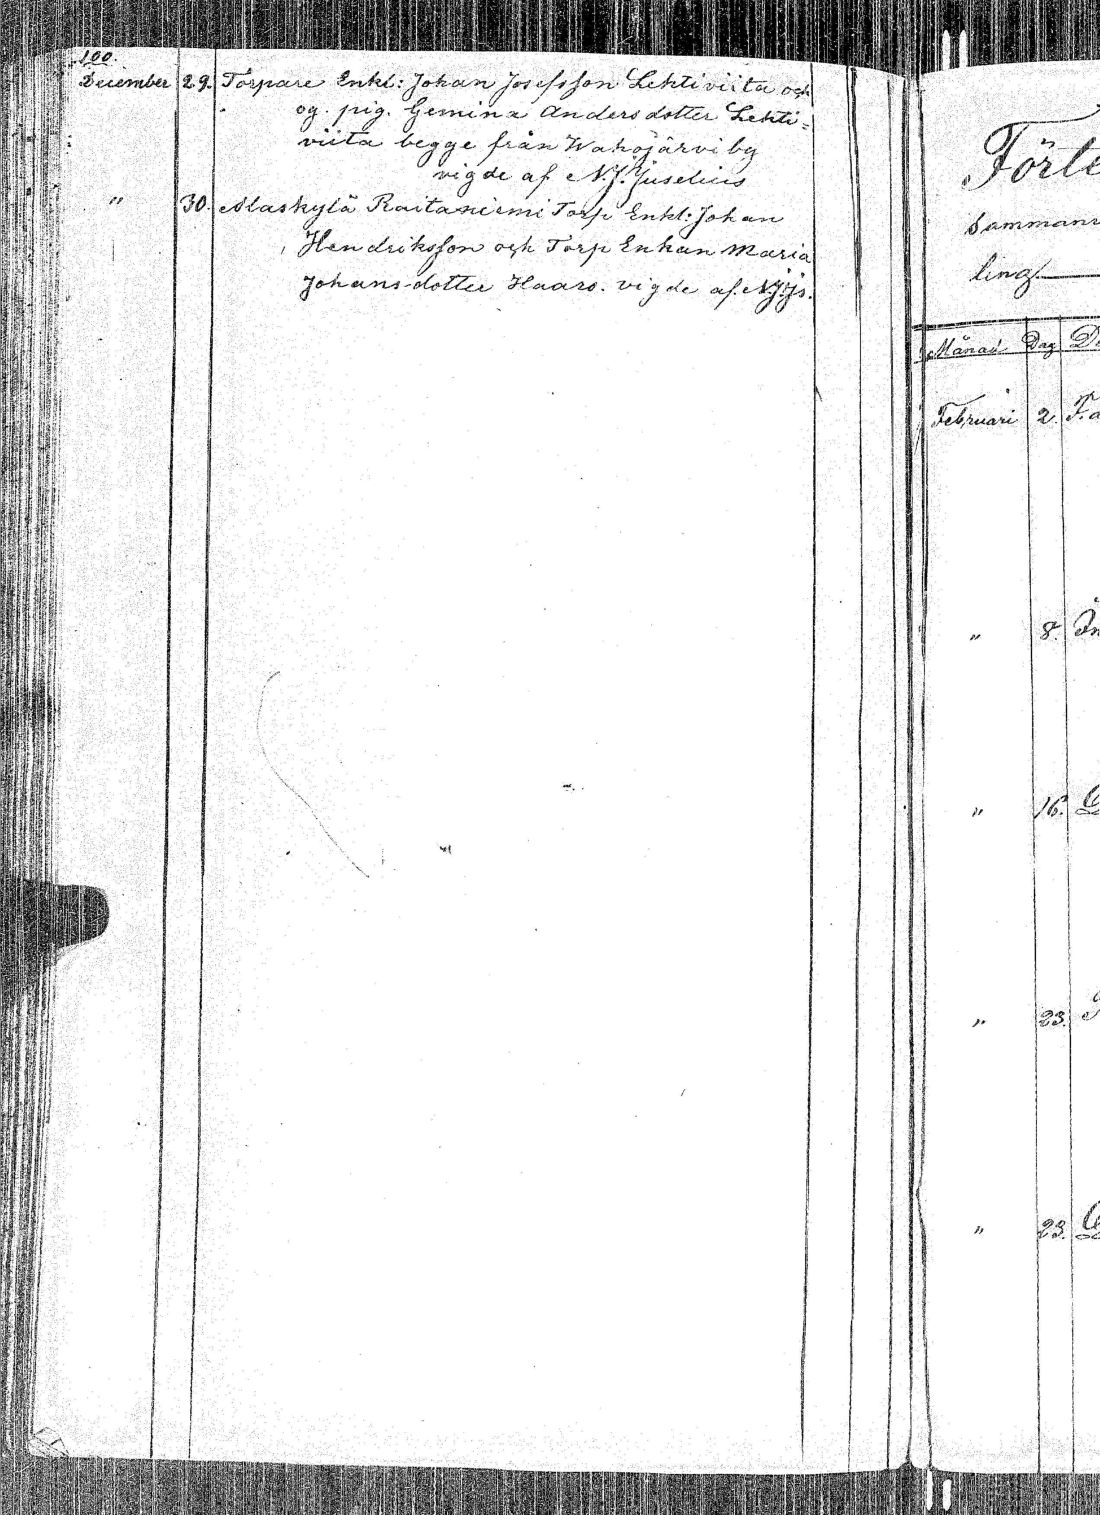 100.
December 29. Torpare Enkl: Johan Josefsson Lehtiviita och
og. pig. Gemina Andersdotter Lehti=
viita begge från Wahojärvi by
vigde af N.J. Juselius
" 30. Alaskylä Raitaniemi Torp Enkl: Johan
Hendriksson och Torp Enkan Maria
Johansdotter Haaro. vigde af. N.J.Js.
Förte
Samman
ling
Månad Dag
Februari 2.
" 8.
" 16.
" 23.
" 23.